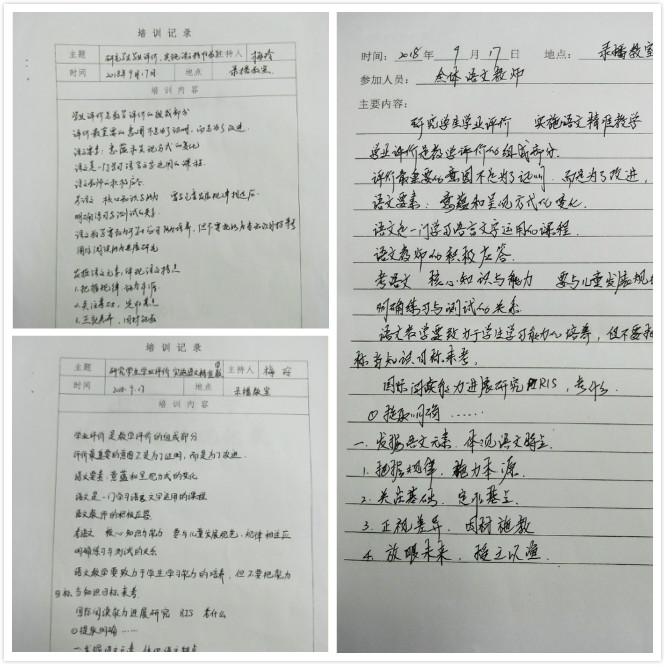 培训记录
主题 研究学生学业评价，实施语文精准教学 主持人 梅玲
时间 2018年9月17日 地点 录播教室
培训内容
学业评价是教学评价的组成部分
评价最重要的意图不是为了证明，而是为了改进.
语文要素：意蕴和呈现方式的变化
语文是一门学习语言文字运用的课程.
语文教师的积极应答
考语文 核心知识与能力 要与儿童发展规律相适应.
明确练习与测试的关系.
语文教学要致力于学生学习能力的培养，但不要把能力
国际阅读能力进展研究
发掘语文元素，体现语文特点
1.把握规律，施力有源
2.关注基础，
3.正视差异，因材施教
培训记录
主题 研究学生学业评价 实施语文精准教 主持人 梅玲
时间 2018.9.17 地点 录播教室
培训内容
学业评价是教学评价的组成部分
评价最重要的意图不是为了证明，而是为了改进.
语文要素：意蕴和呈现方式的变化
语文是一门学习语言文字运用的课程
语文教师的积极应答
考语文 核心知识与能力 要与儿童发展规律相适应
明确练习与测试的关系
语文教学要致力于学生学习能力的培养，但不要把能力
目标当知识目标来考.
国际阅读能力进展研究 考什么
①提取明确……
时间：2018年9月17日 地点：录播教室
参加人员：全体语文教师
主要内容：
研究学生学业评价 实施语文精准教学
学业评价是教学评价的组成部分.
评价最重要的意图不是为了证明，而是为了改进，
语文要素：意蕴和呈现方式的变化.
语文是一门学习语言文字运用的课程.
语文教师的积极应答.
考语文 核心知识与能力 要与儿童发展规
明确练习与测试的关系
语文教学要致力于学生学习能力的培养，但不要把
标当知识目标来考.
国际阅读能力进展研究 RIS，考什么
①提取明确……
一、发掘语文元素，体现语文特点.
1. 把握规律，施力有源.
2. 关注基础，
3. 正视差异，因材施教
4. 放眼未来，